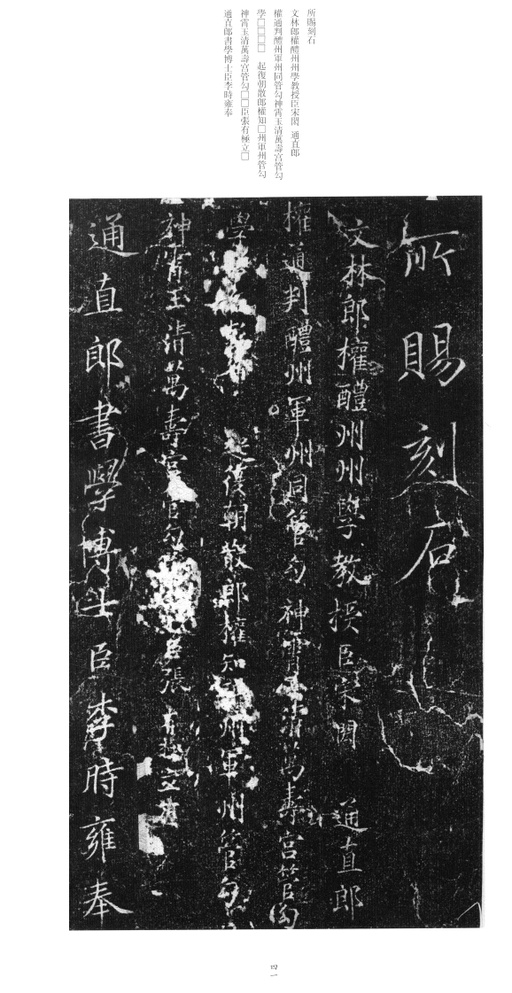 所賜刻石
文林郎權醴州州學教授臣宋閎　通直郎
權通判醴州軍州同管勾神霄玉清萬壽宮管勾
學□□□□　起復朝散郎權知□州軍州管勾
神霄玉清萬壽宮管勾□□臣張有極立□
通直郎書學博士臣李時雍奉
所賜刻石
文林郎權醴州州學教授臣宋　通直郎
權通判醴州軍州同管勾神霄玉清萬壽宮管勾
學　起復朝散郎權知州軍州管勾
神霄玉清萬壽宮管勾臣張有極立
通直郎書學博士臣李時雍奉
四一